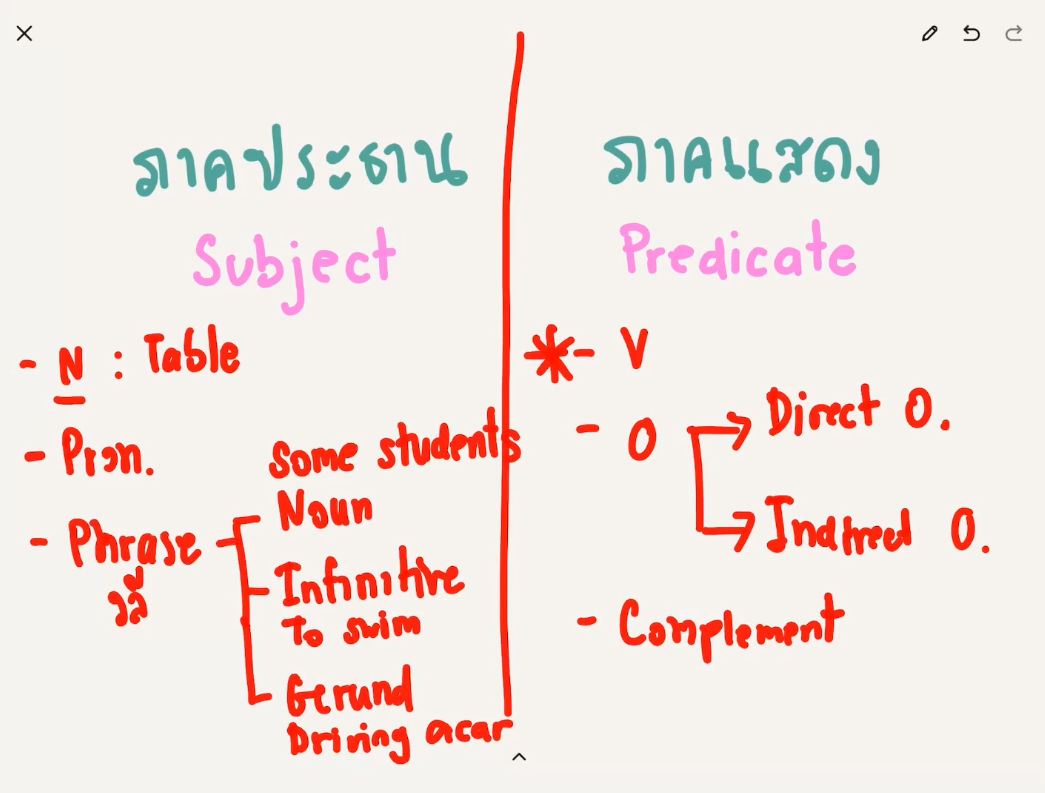 ภาคประธาน
Subject
- N : Table
- Pron.
- Phrase
วลี
some students
Noun
Infinitive
To swim
Gerund
Driving a car
ภาคแสดง
Predicate
*- V
- O
Direct O.
Indirect O.
- Complement